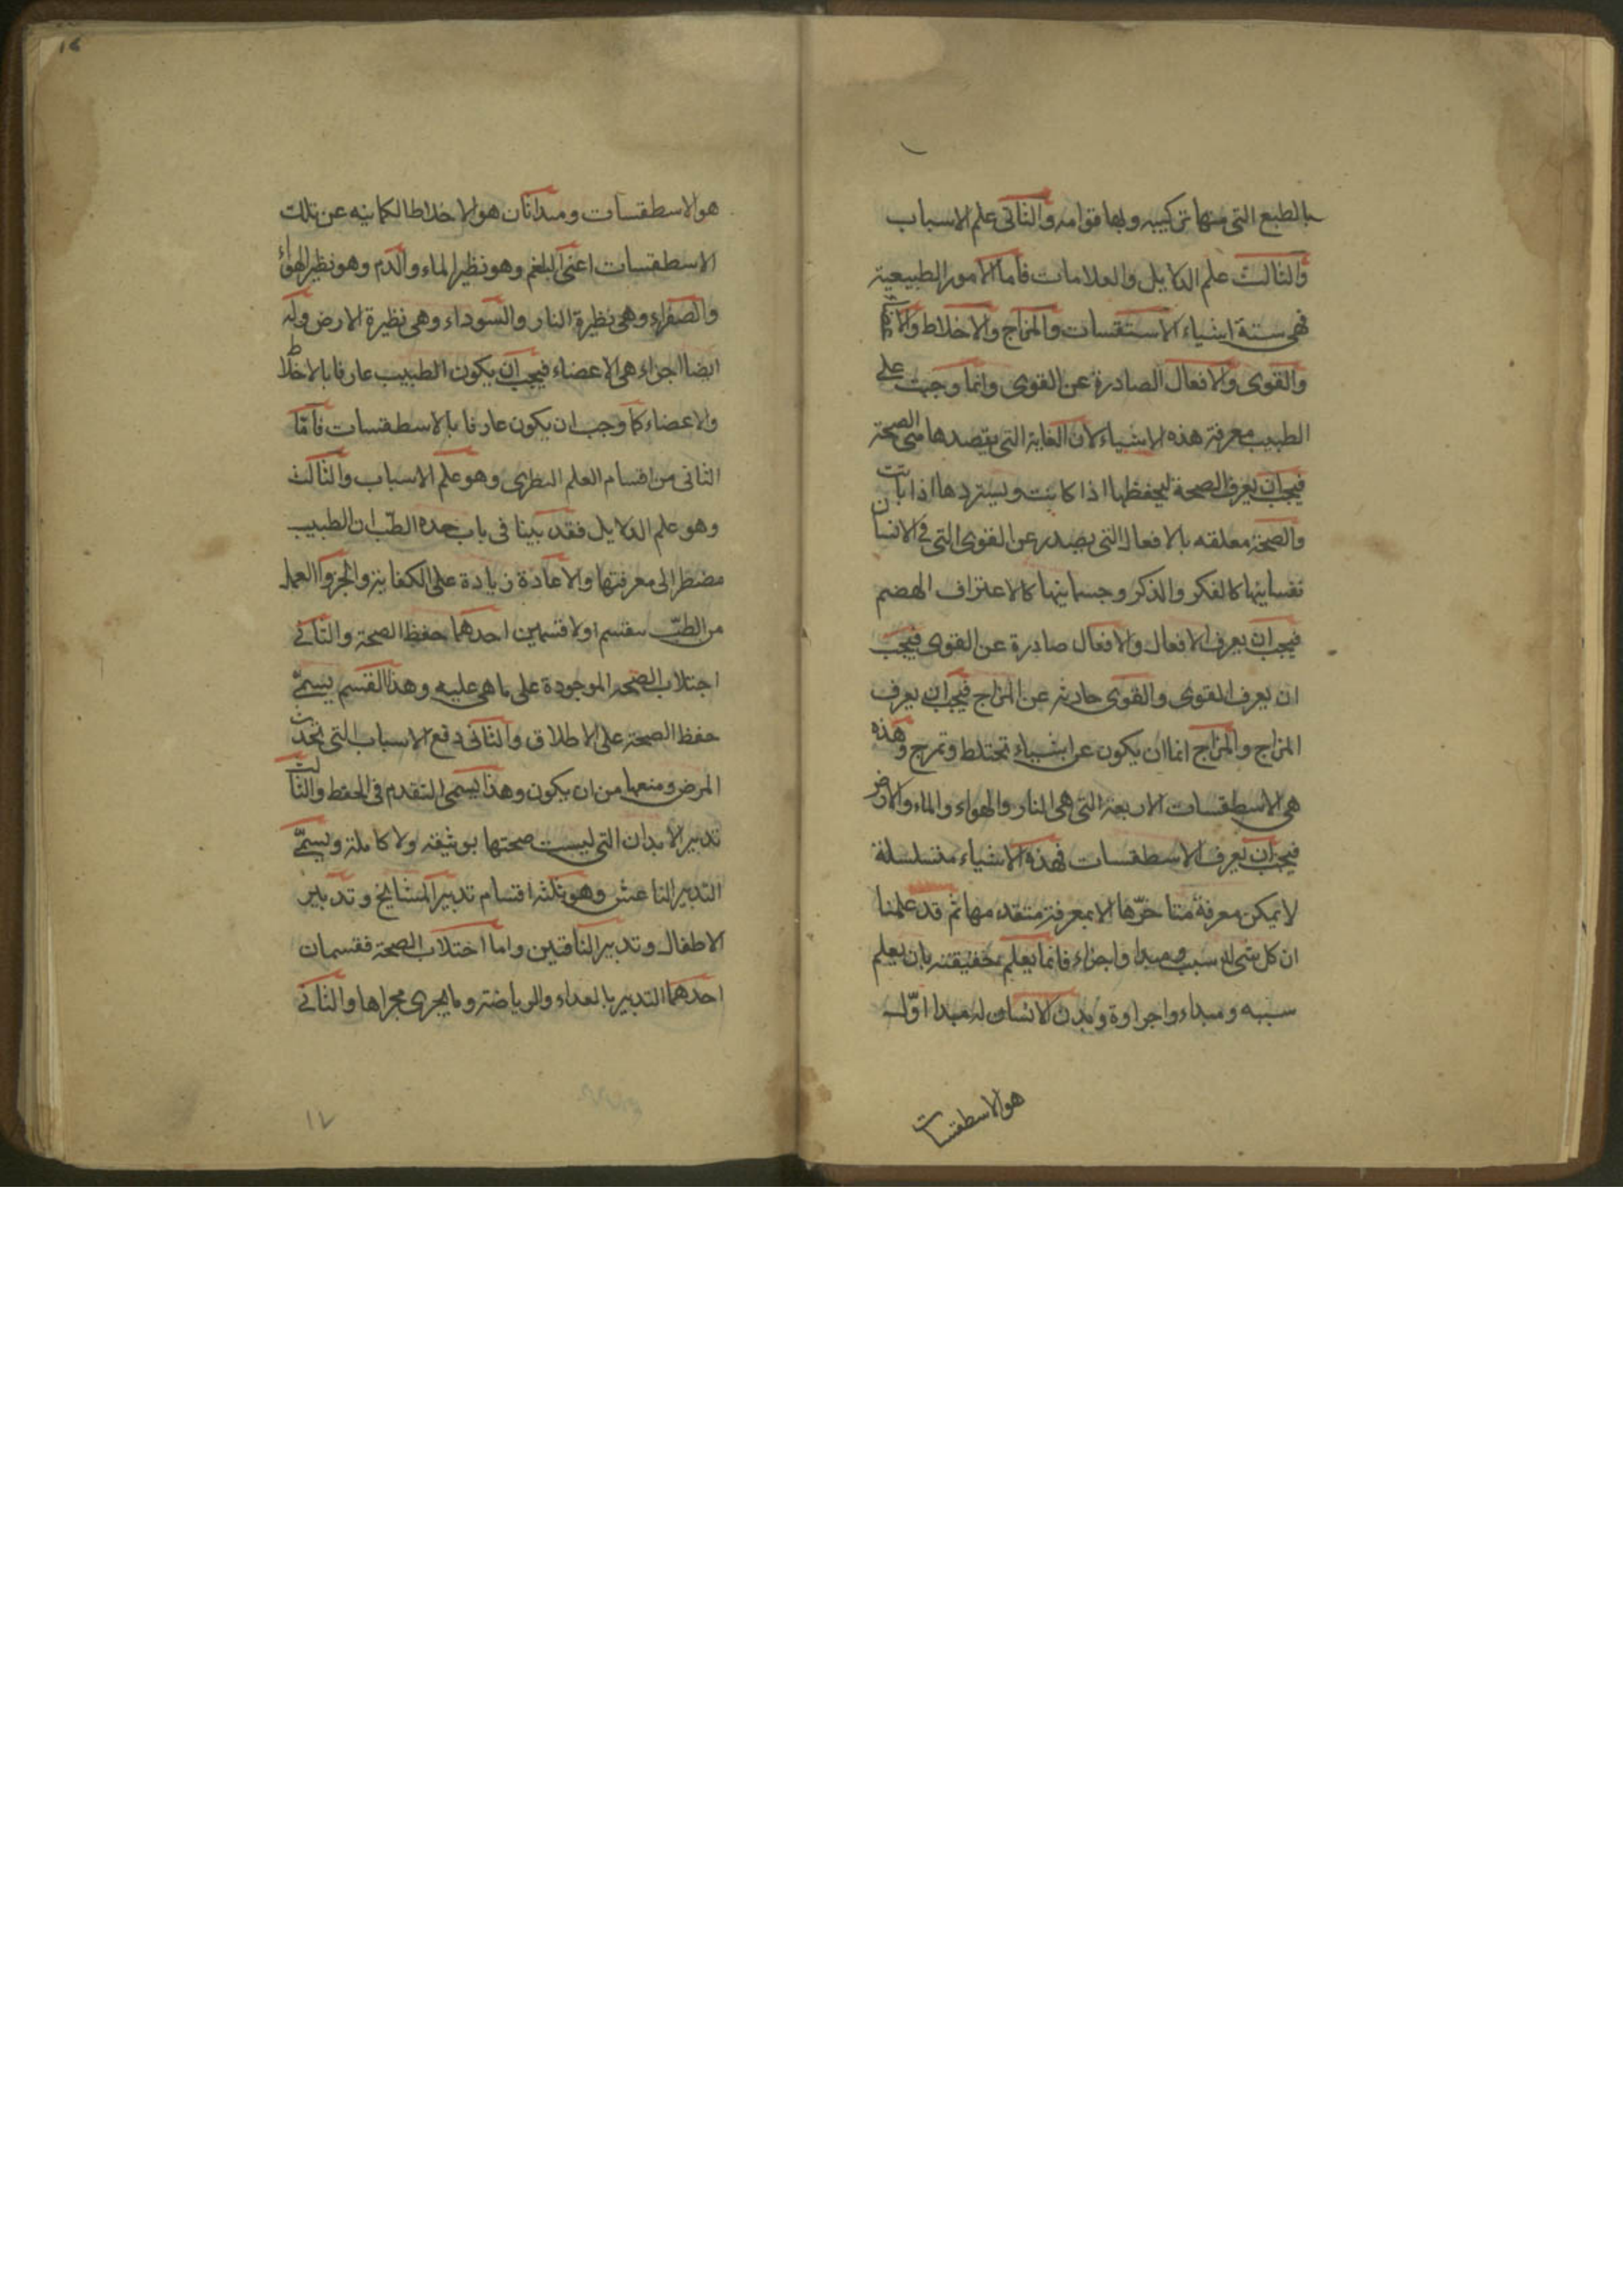 بالطبع التى منها تركيبه وبها قوامه والثانى علم الاسباب
والثالث علم الدلايل والعلامات فاما الامور الطبيعية
فهى ستة اشياء الاستقسات والمزاج والاخلاط والا
والقوى والافعال الصادرة عن القوى وانما وجبت على
الطبيب معرفة هذه الاشياء لان الغاية التى يقصدها هى الصحة
فيجب ان يعرف الصحة ليحفظها اذا كانت ويستردها اذا بانت
والصحة معلقه بالافعال التى يصدر عن القوى التى فى الانسان
نفسانيتها كالفكر والذكر وجسمانيتها كالاعتراف الهضم
فيجب ان يعرف الافعال والافعال صادرة عن القوى فيجب
ان يعرف القوى والقوى حادثه عن المزاج فيجب ان يعرف
المزاج والمزاج انما ان يكون عن اشياء تختلط وتمزج وهذه
هى الاسطقسات الاربعة التى هى النار والهواء والماء والارض
فيجب ان يعرف الاسطقسات فهذه الاشياء متسلسلة
لا يمكن معرفة متاخرها الا بمعرفة متقدمها ثم قد علمنا
ان كل شى له سبب ومبدا واجزاء فانما يعلم بحقيقته بان يعلم
سببه ومبداء واجراوة وبدن الانسان له مبدا اول
هو الاسطقسات
هو الاسطقسات ومبدا ثان هو الاخلاط الكاينه عن تلك
الاسطقسات اعنى البلغم وهو نظير الماء والدم وهو نظير الهواء
والصفراء وهى نظيرة النار والسوداء وهى نظيرة الارض وله
ايضا اجزاء هى الاعضاء فيجب ان يكون الطبيب عارفا بالاخلاط
والاعضاء كما وجب ان يكون عارفا بالاسطقسات فاما
الثانى من اقسام العلم النظرى وهو علم الاسباب والثالث
وهو علم الدلايل فقد بينا فى باب حده الطب ان الطبيب
مضطر الى معرفتها والاعادة زيادة على الكفاية والجزو العملى
من الطب ينقسم اولا قسمين احدهما حفظ الصحة والثانى
اجتلاب الصحه الموجودة على ما هى عليه وهذا القسم يسمى
حفظ الصحة على الاطلاق والثانى دفع الاسباب التى تحدث
المرض ومنعها من ان يكون وهذا يسمى التقدم فى الحفظ والثالث
تدبير الابدان التى ليست صحتها بوثيقه ولا كاملة ويسمى
التدبير الناعش وهو ثلثه اقسام تدبير المشايخ وتدبير
الاطفال وتدبير الناقهين واما اختلاب الصحة فقسمان
احدهما التدبير بالغداء والرياضة وما يجرى مجراها والثانى
١٧